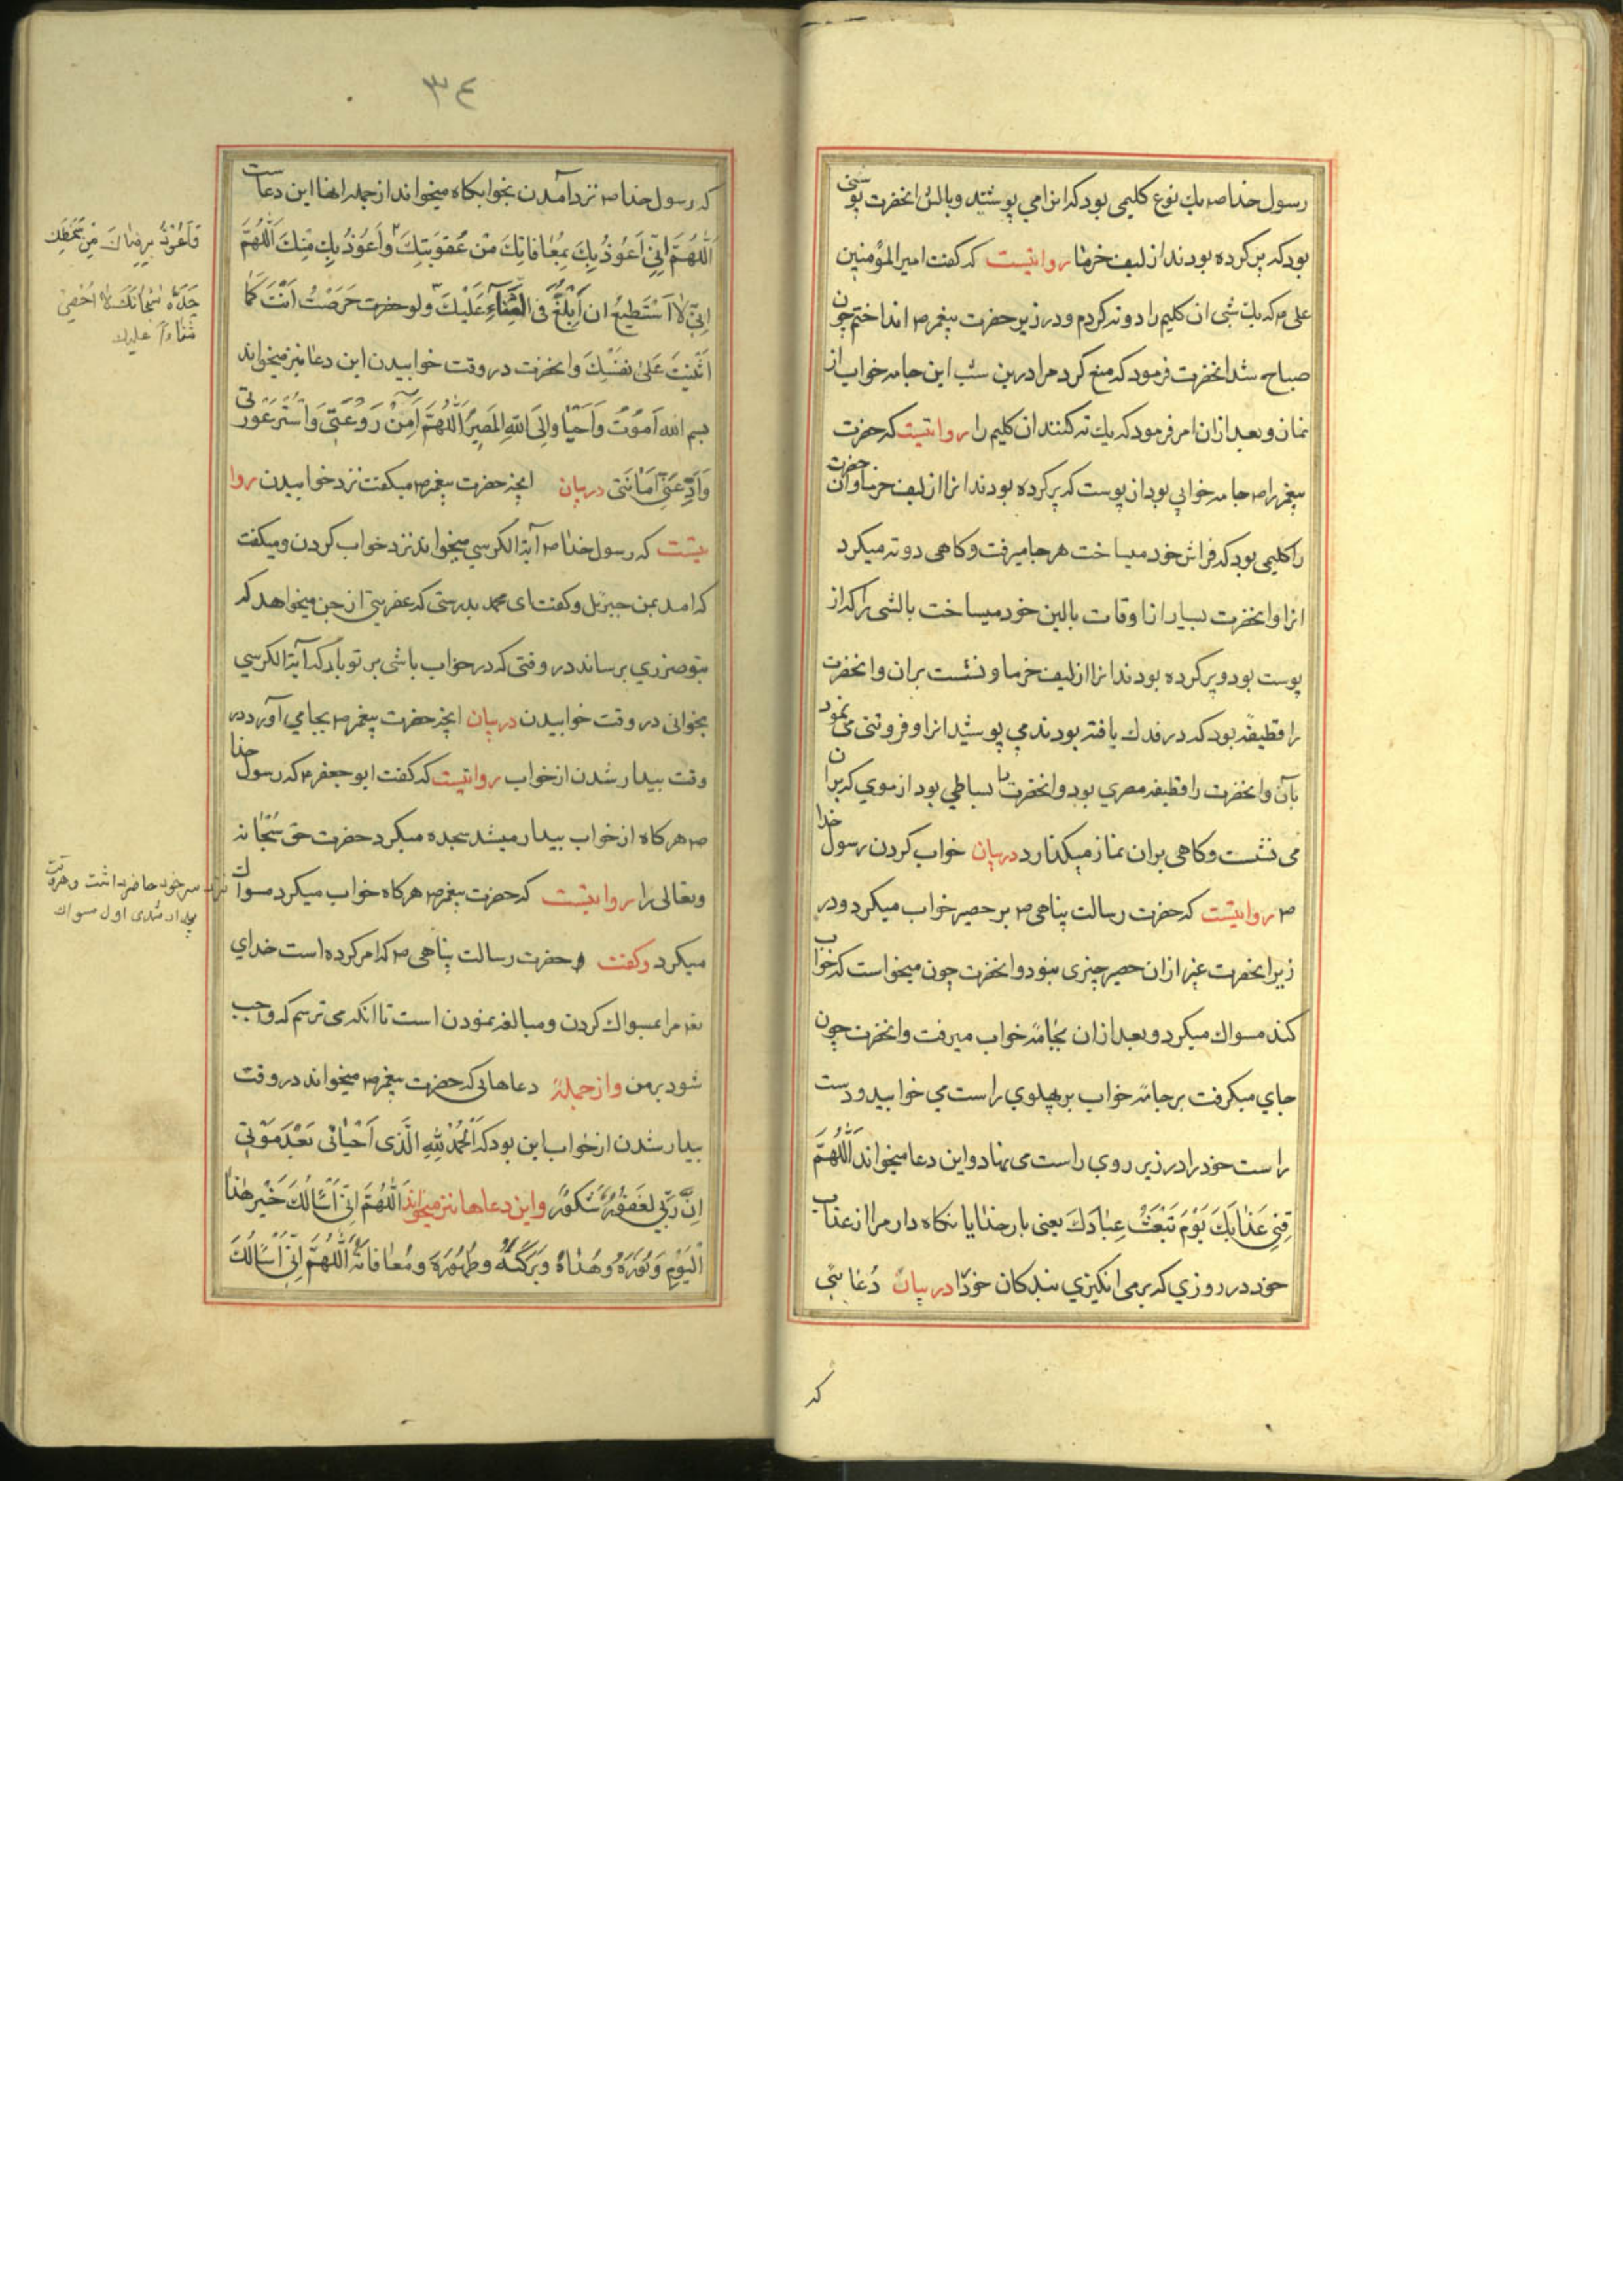 رسول خدا ص یك نوع کلیمی بود که انرا می پوشید و بالش انحضرت پوستی
بود که پر کرده بودند از لیف خرما روایتیست که کفت امیر المؤمنین
علی ع که یك شبی ان کلیم را دو ته کردم و در زیر حضرت پیغمبر ص انداختم چون
صباح شد انحضرت فرمود که منع کرد مرا درین شب این جامه خواب از
نماز و بعد ازان امر فرمود که یك ته کنند ان کلیم را روایتیست که حضرت
پیغمبر را ص جامه خوابی بود از پوست که پر کرده بودند انرا از لیف خرما و ان حضرت
را کلیمی بود که فراش خود میساخت هر جا میرفت و کاهی دو ته میکرد
انرا و انحضرت بسیار از اوقات بالین خود میساخت بالشی را که از
پوست بود و پر کرده بودند انرا از لیف خرما و نشست بران و انحضرت
را قطیفه بود که در فدك یافته بودند می پوشید انرا و فروتنی می نمود
بآن و انحضرت را قطیفه مصری بود و انحضرت را بساطی بود از موی که بران
می نشست و کاهی بران نماز میکذارد در بیان خواب کردن رسول خدا
ص روایتست که حضرت رسالت پناهی ص بر حصیر خواب میکرد و در
زیر انحضرت غیر ازان حصیر چیزی نبود و انحضرت چون میخواست که خواب
کند مسواك میکرد و بعد ازان بجامۀ خواب میرفت و انحضرت چون
جای میکرفت بر جامۀ خواب بر پهلوی راست می خوابید و دست
راست خود را در زیر روی راست می نهاد و این دعا میخواند اَللّٰهُمَّ
قِنِی عَذَابَكَ یَوْمَ تَبْعَثُ عِبَادَكَ یعنی بار خدایا نکاه دار مرا از عذاب
خود در روزی که بر می انکیزی بندکان خود را در بیان دُعاییی
که
٣٤
که رسول خدا ص نزد آمدن بخوابکاه میخواند از جمله انها این دعاست
اَللّٰهُمَّ اِنِّی اَعُوذُ بِكَ بِمُعَافَاتِكَ مِنْ عُقُوبَتِكَ وَاَعُوذُ بِكَ مِنْكَ اَللّٰهُمَّ
اِنِّی لَا اَسْتَطِیعُ ان اَبْلُغَ فِی الثَّنَآءِ عَلَیْكَ ولو حَرَصْتُ اَنْتَ كَمَا
اَثْنَیْتَ عَلیٰ نَفْسِكَ و انحضرت در وقت خوابیدن این دعا نیز میخواند
بسم الله اَمُوْتُ وَاَحْیٰا وَاِلَی اللّٰهِ المَصِیرُ اَللّٰهُمَّ اٰمِنْ رَوْعَتِی وَاسْتُرْ عَوْرَتِی
وَاَدِّ عَنِّی اَمَانَتِی در بیان انچه حضرت پیغمبر ص میکفت نزد خوابیدن روا
یتست که رسول خدا ص آیة الکرسی میخواند نزد خواب کردن و میکفت
که امد بمن جبرئیل و کفت ای محمد بدرستی که عفریتی از جن میخواهد که
بتو ضرری برساند در وقتی که در خواب باشی بر تو باد که آیة الکرسی
بخوانی در وقت خوابیدن در بیان انچه حضرت پیغمبر ص بجا می آورد در
وقت بیدار شدن از خواب روایتیست که کفت ابو جعفر ع که رسول خدا
ص هر کاه از خواب بیدار میشد سجده میکرد حضرت حق سُبْحَانه
وتعالی را روایتیست که حضرت پیغمبر ص هر کاه خواب میکرد مسواك
میکرد وکفت حضرت رسالت پناهی ص که امر کرده است خدای
تع مرا بمسواك کردن و مبالغه نمودن است تا انکه می ترسم که واجب
شود بر من واز جملۀ دعاهایی که حضرت پیغمبر ص میخواند در وقت
بیدار شدن از خواب این بود که اَلْحَمْدُ لِلّٰهِ الَّذِی اَحْیَانِی بَعْدَ مَوْتِی
اِنَّ رَبِّی لَغَفُوْرٌ شَكُوْرٌ و این دعاها نیز میخواند اَللّٰهُمَّ اِنِّی اَسْاَلُكَ خَیْرَ هٰذَا
الْیَوْمِ وَنُورَهُ وَهُدَاهُ وَبَرَكَتَهُ وَطَهُورَهُ وَمُعَافَاتَهُ اَللّٰهُمَّ اِنِّی اَسْاَلُكَ
وَاَعُوْذُ بِرِضَاكَ مِنْ سَخَطِكَ
سُبْحَانَكَ لَا اُحْصِی
ثَنَاءً عَلیك
سر خود حاضر داشت و هر وقت
بیدار شدی اول مسواك